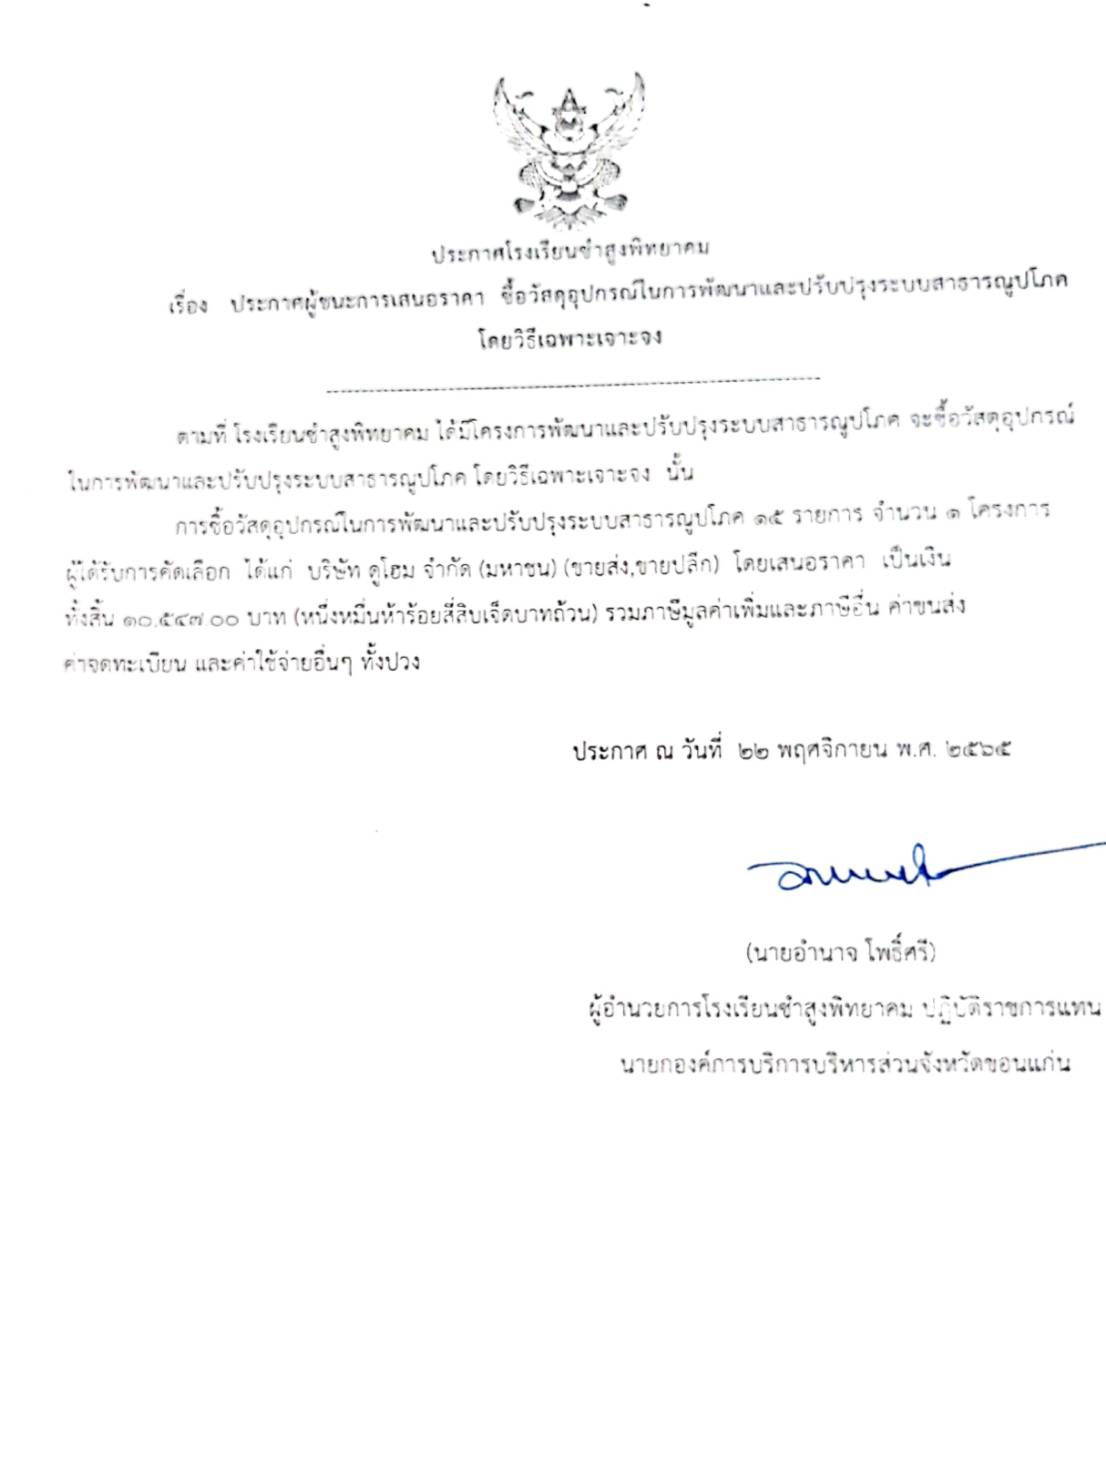 ประกาศโรงเรียนซำสูงพิทยาคม
เรื่อง ประกาศผู้ชนะการเสนอราคา ซื้อวัสดุอุปกรณ์ในการพัฒนาและปรับปรุงระบบสาธารณูปโภค
โดยวิธีเฉพาะเจาะจง
ตามที่ โรงเรียนซำสูงพิทยาคม ได้มีโครงการพัฒนาและปรับปรุงระบบสาธารณูปโภค จะซื้อวัสดุอุปกรณ์
ในการพัฒนาและปรับปรุงระบบสาธารณูปโภค โดยวิธีเฉพาะเจาะจง นั้น
การซื้อวัสดุอุปกรณ์ในการพัฒนาและปรับปรุงระบบสาธารณูปโภค ๑๕ รายการ จำนวน ๑ โครงการ
ผู้ได้รับการคัดเลือก ได้แก่ บริษัท ดูโฮม จำกัด (มหาชน) (ขายส่ง,ขายปลีก) โดยเสนอราคา เป็นเงิน
ทั้งสิ้น ๑๐.๕๔๗.๐๐ บาท (หนึ่งหมื่นห้าร้อยสี่สิบเจ็ดบาทถ้วน) รวมภาษีมูลค่าเพิ่มและภาษีอื่น ค่าขนส่ง
ค่าจดทะเบียน และค่าใช้จ่ายอื่นๆ ทั้งปวง
ประกาศ ณ วันที่ ๒๒ พฤศจิกายน พ.ศ. ๒๕๖๕
(นายอำนาจ โพธิ์ศรี)
ผู้อำนวยการโรงเรียนซำสูงพิทยาคม ปฏิบัติราชการแทน
นายกองค์การบริการบริหารส่วนจังหวัดขอนแก่น